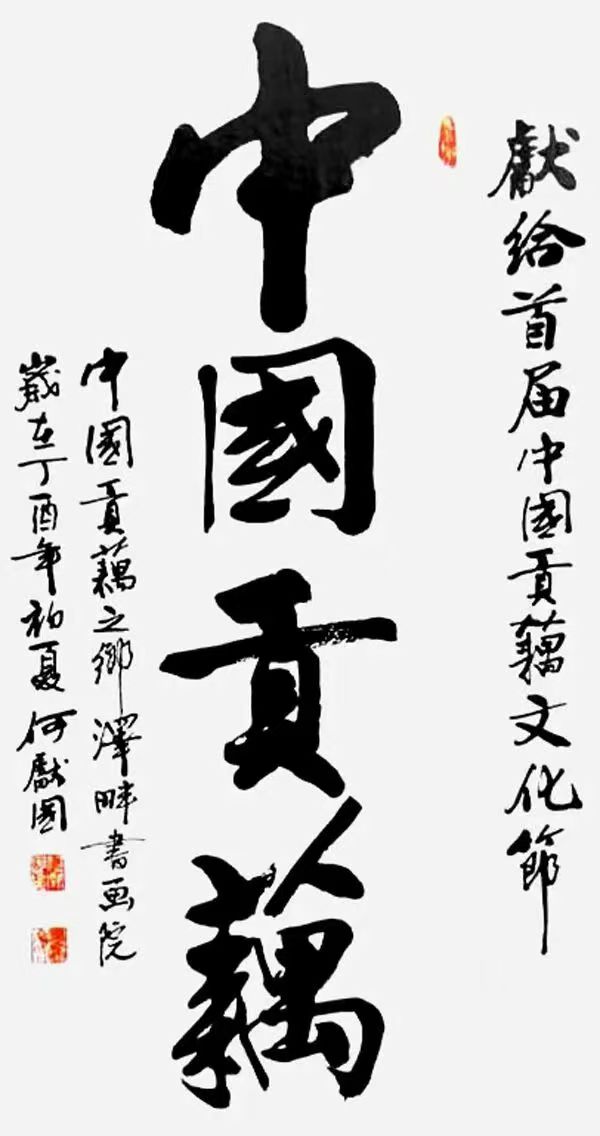 獻给首届中國貢藕文化節
中國貢藕
中國貢藕之鄉澤畔書画院
歲在丁酉年初夏何獻國